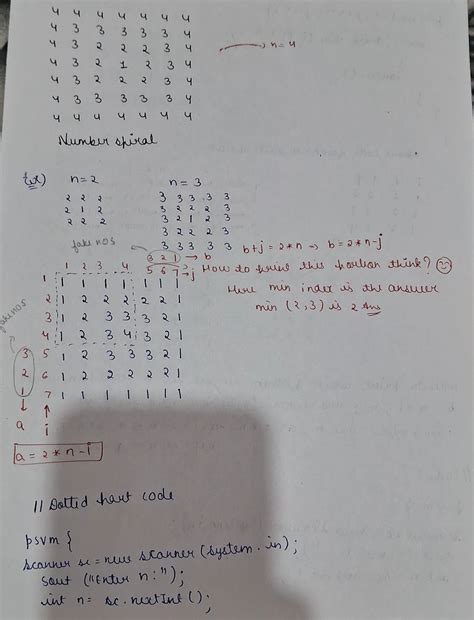 4 4 4 4 4 4 4
4 3 3 3 3 3 4
4 3 2 2 2 3 4
4 3 2 1 2 3 4
4 3 2 2 2 3 4
4 3 3 3 3 3 4
4 4 4 4 4 4 4
n=4
Number spiral
Ex)
n=2
2 2 2
2 1 2
2 2 2
n=3
3 3 3 3 3
3 2 2 2 3
3 2 1 2 3
3 2 2 2 3
3 3 3 3 3
fake nos
3 2 1 → b
b+j = 2*n → b = 2*n-j
1 2 3 4 5 6 7 → j
How to print this portion think?
Here min index is the answer
min (2,3) is 2 Ans
fake nos
1 1 1 1 1 1 1 1
2 1 2 2 2 2 2 1
3 1 2 3 3 3 2 1
4 1 2 3 4 3 2 1
3 5 1 2 3 3 3 2 1
2 6 1 2 2 2 2 2 1
1 7 1 1 1 1 1 1 1
a i
a = 2*n-i
// Dotted part code
psvm {
Scanner sc = new Scanner (System.in);
sout ("Enter n:");
int n = sc.nextInt ();